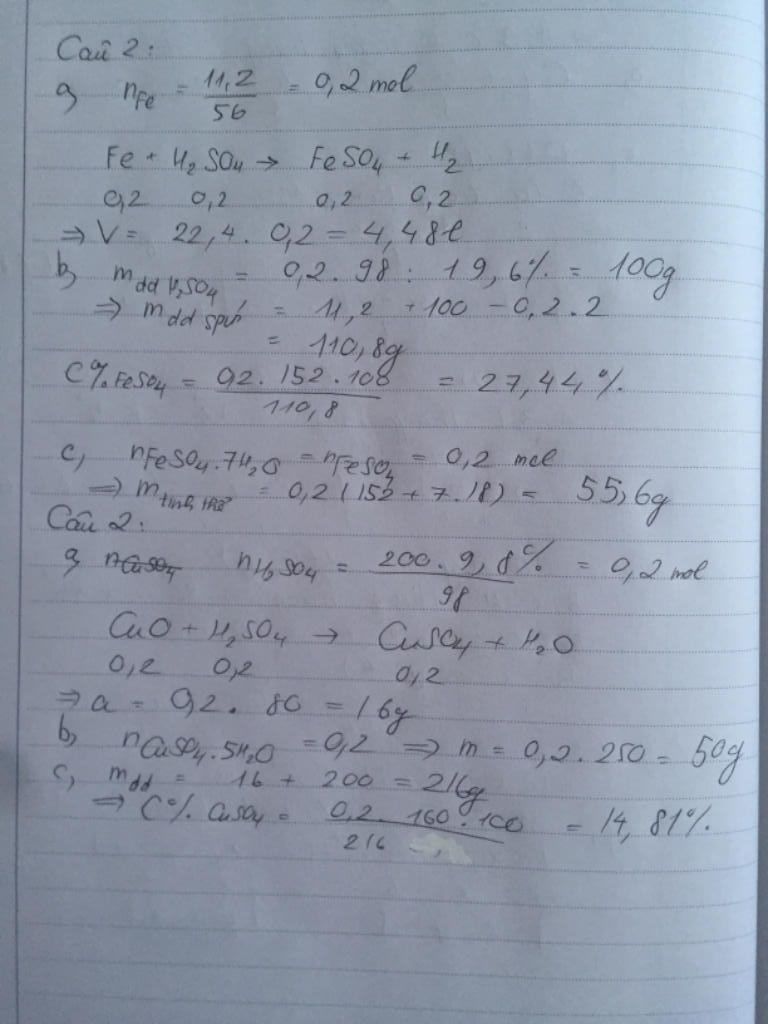 Câu 2:
a, nFe = 11,2/56 = 0,2 mol
Fe + H2SO4 → FeSO4 + H2
0,2 0,2 0,2 0,2
⇒ V = 22,4. 0,2 = 4,48l
b, mdd H2SO4 = 0,2. 98 : 19,6% = 100g
⇒ mdd spứ = 11,2 + 100 - 0,2.2
= 110,8g
C% FeSO4 = 0,2. 152. 100/110,8 = 27,44%
c, nFeSO4.7H2O = nFeSO4 = 0,2 mol
⇒ mtinh thể = 0,2(152 + 7.18) = 55,6g
Câu 2:
a, nCuSO4 nH2SO4 = 200. 9,8%/98 = 0,2 mol
CuO + H2SO4 → CuSO4 + H2O
0,2 0,2 0,2
⇒ a = 0,2. 80 = 16g
b, nCuSO4.5H2O = 0,2 ⇒ m = 0,2. 250 = 50g
c, mdd = 16 + 200 = 216g
⇒ C% CuSO4 = 0,2. 160. 100/216 = 14,81%